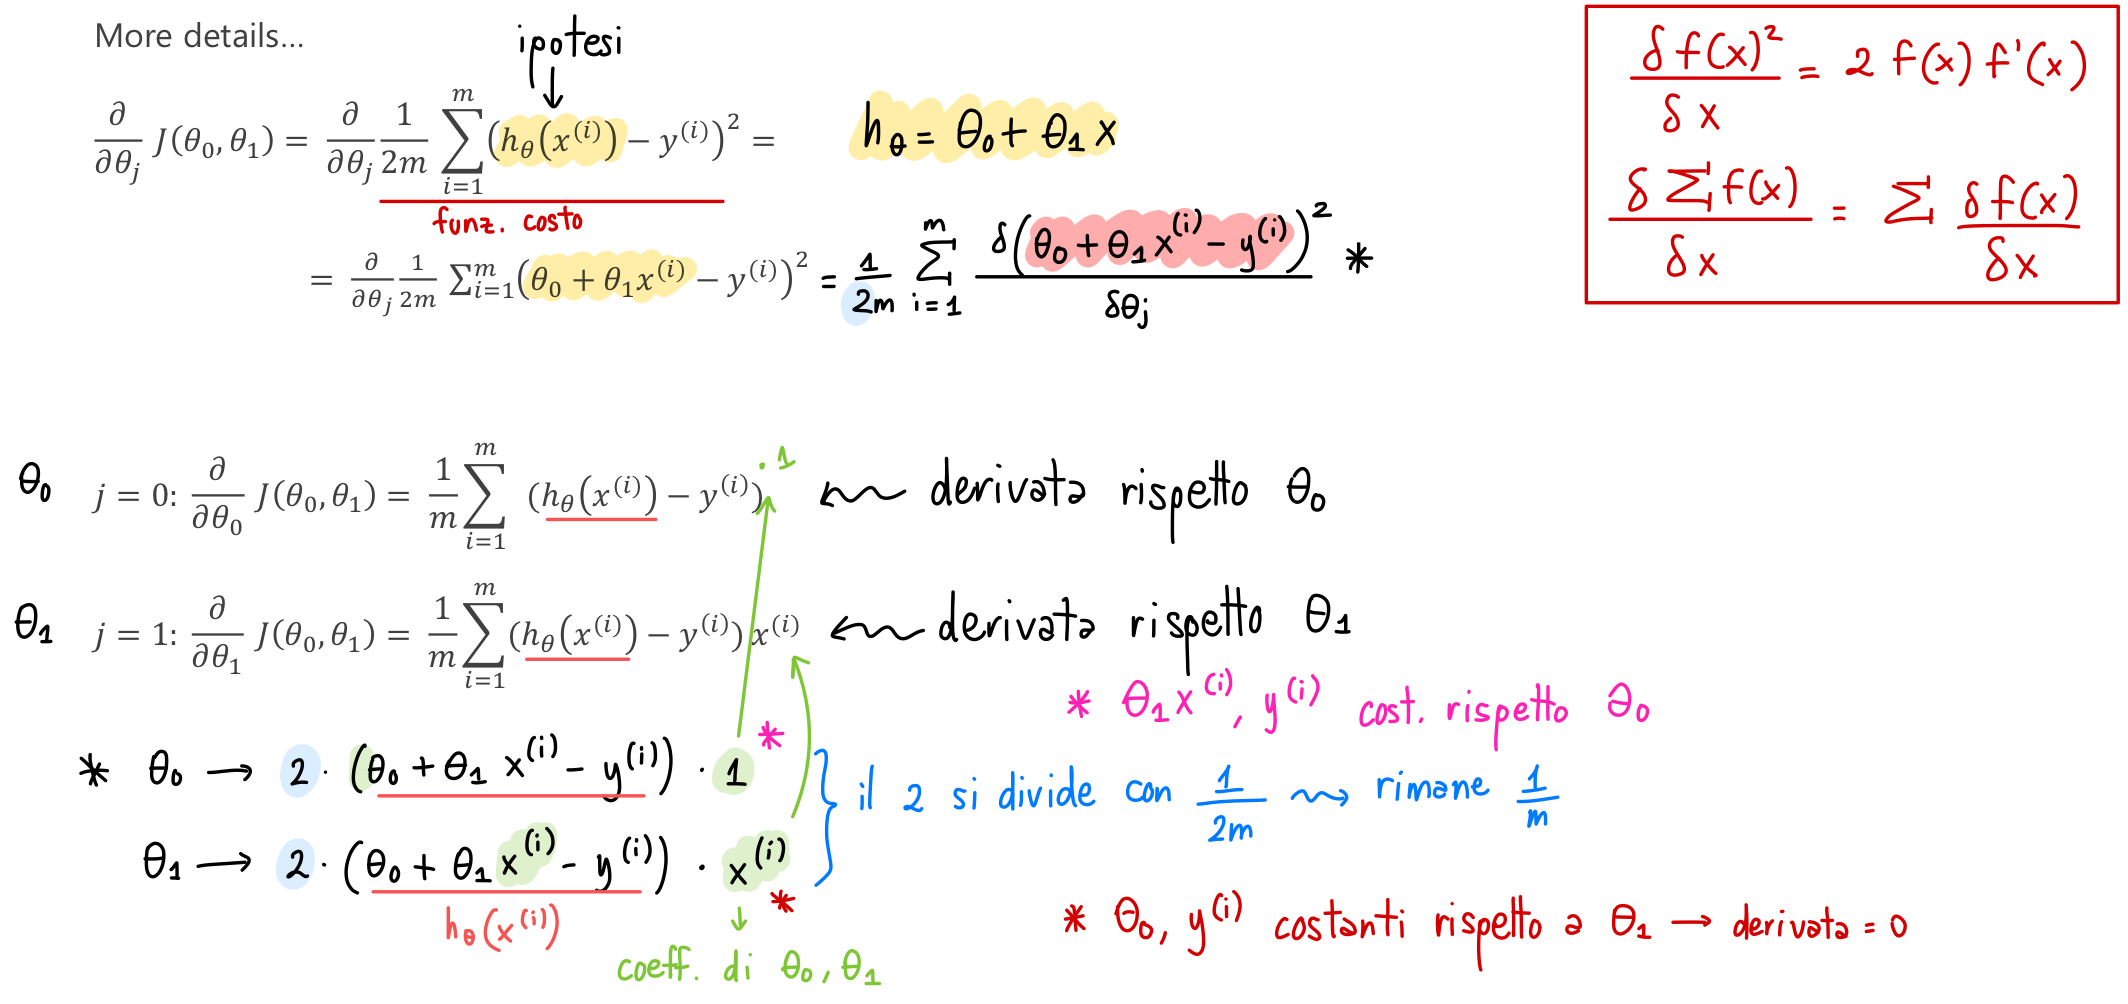 More details...
ipotesi
∂/∂θj J(θ0, θ1) = ∂/∂θj 1/2m ∑_{i=1}^{m} (hθ(x^(i)) − y^(i))² =
hθ = θ0 + θ1 x
funz. costo
= ∂/∂θj 1/2m ∑_{i=1}^{m} (θ0 + θ1x^(i) − y^(i))² = 1/2m ∑_{i=1}^{m} δ(θ0 + θ1 x^(i) − y^(i))² / δθj *
δ f(x)² / δx = 2 f(x) f'(x)
δ ∑ f(x) / δx = ∑ δ f(x) / δx
θ0 j = 0: ∂/∂θ0 J(θ0, θ1) = 1/m ∑_{i=1}^{m} (hθ(x^(i)) − y^(i)) · 1 ← derivata rispetto θ0
θ1 j = 1: ∂/∂θ1 J(θ0, θ1) = 1/m ∑_{i=1}^{m} (hθ(x^(i)) − y^(i)) x^(i) ← derivata rispetto θ1
* θ1 x^(i), y^(i) cost. rispetto θ0
* θ0 → 2 · (θ0 + θ1 x^(i) − y^(i)) · 1 *
il 2 si divide con 1/2m ⇝ rimane 1/m
θ1 → 2 · (θ0 + θ1 x^(i) − y^(i)) · x^(i) *
hθ(x^(i))
* θ0, y^(i) costanti rispetto a θ1 → derivata = 0
↓
coeff. di θ0, θ1